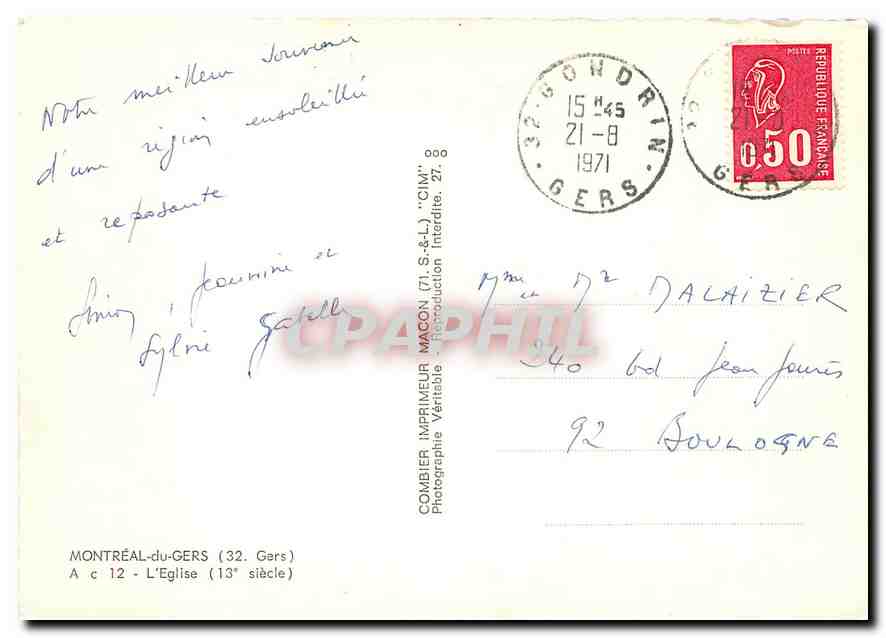 Notre meilleur souvenir
d'une région ensoleillée
et reposante
Jeannine et
Sylvie
MONTRÉAL-du-GERS (32. Gers)
A c 12 - L'Eglise (13e siècle)
COMBIER IMPRIMEUR MACON (71. S.-&-L.) "CIM"
Photographie Véritable - Reproduction Interdite. 27.
32 - GONDRIN
15 H -45
21-8
1971
GERS
32
GERS
POSTES
REPUBLIQUE FRANÇAISE
0,50
Mme et Mr MALAIZIER
240 bd Jean Jaurès
92 BOULOGNE
CPAPHIL